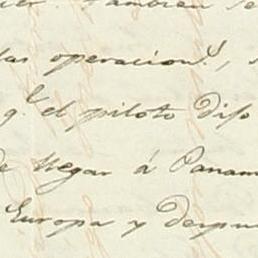 tambien se
las operacion.s, s
q.e el piloto dijo
de llegar á Panam
Europa y despu